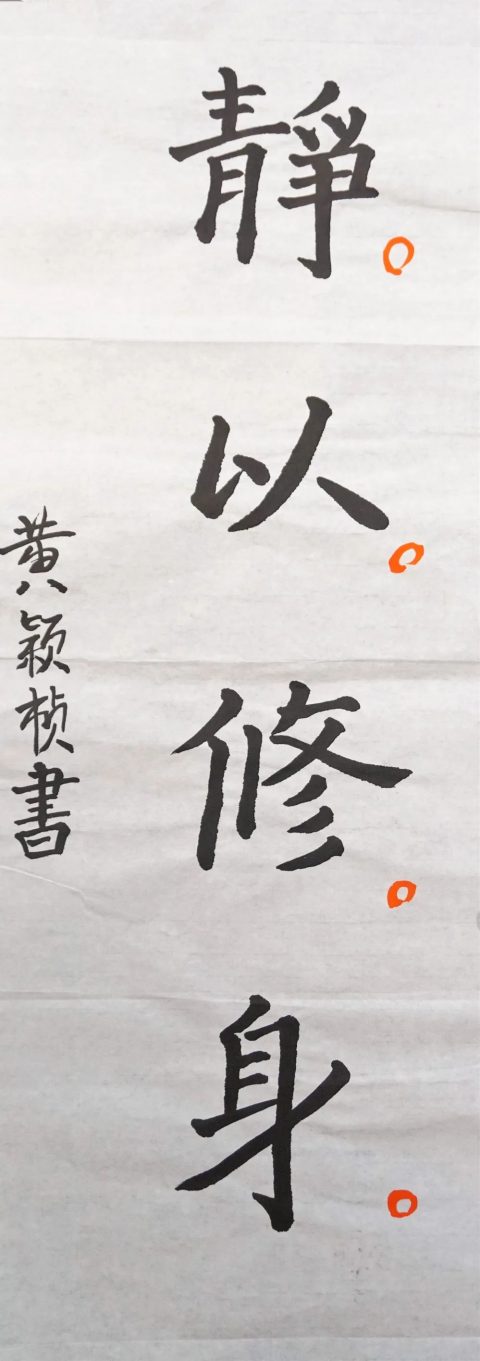 靜以修身
黄颖桢書